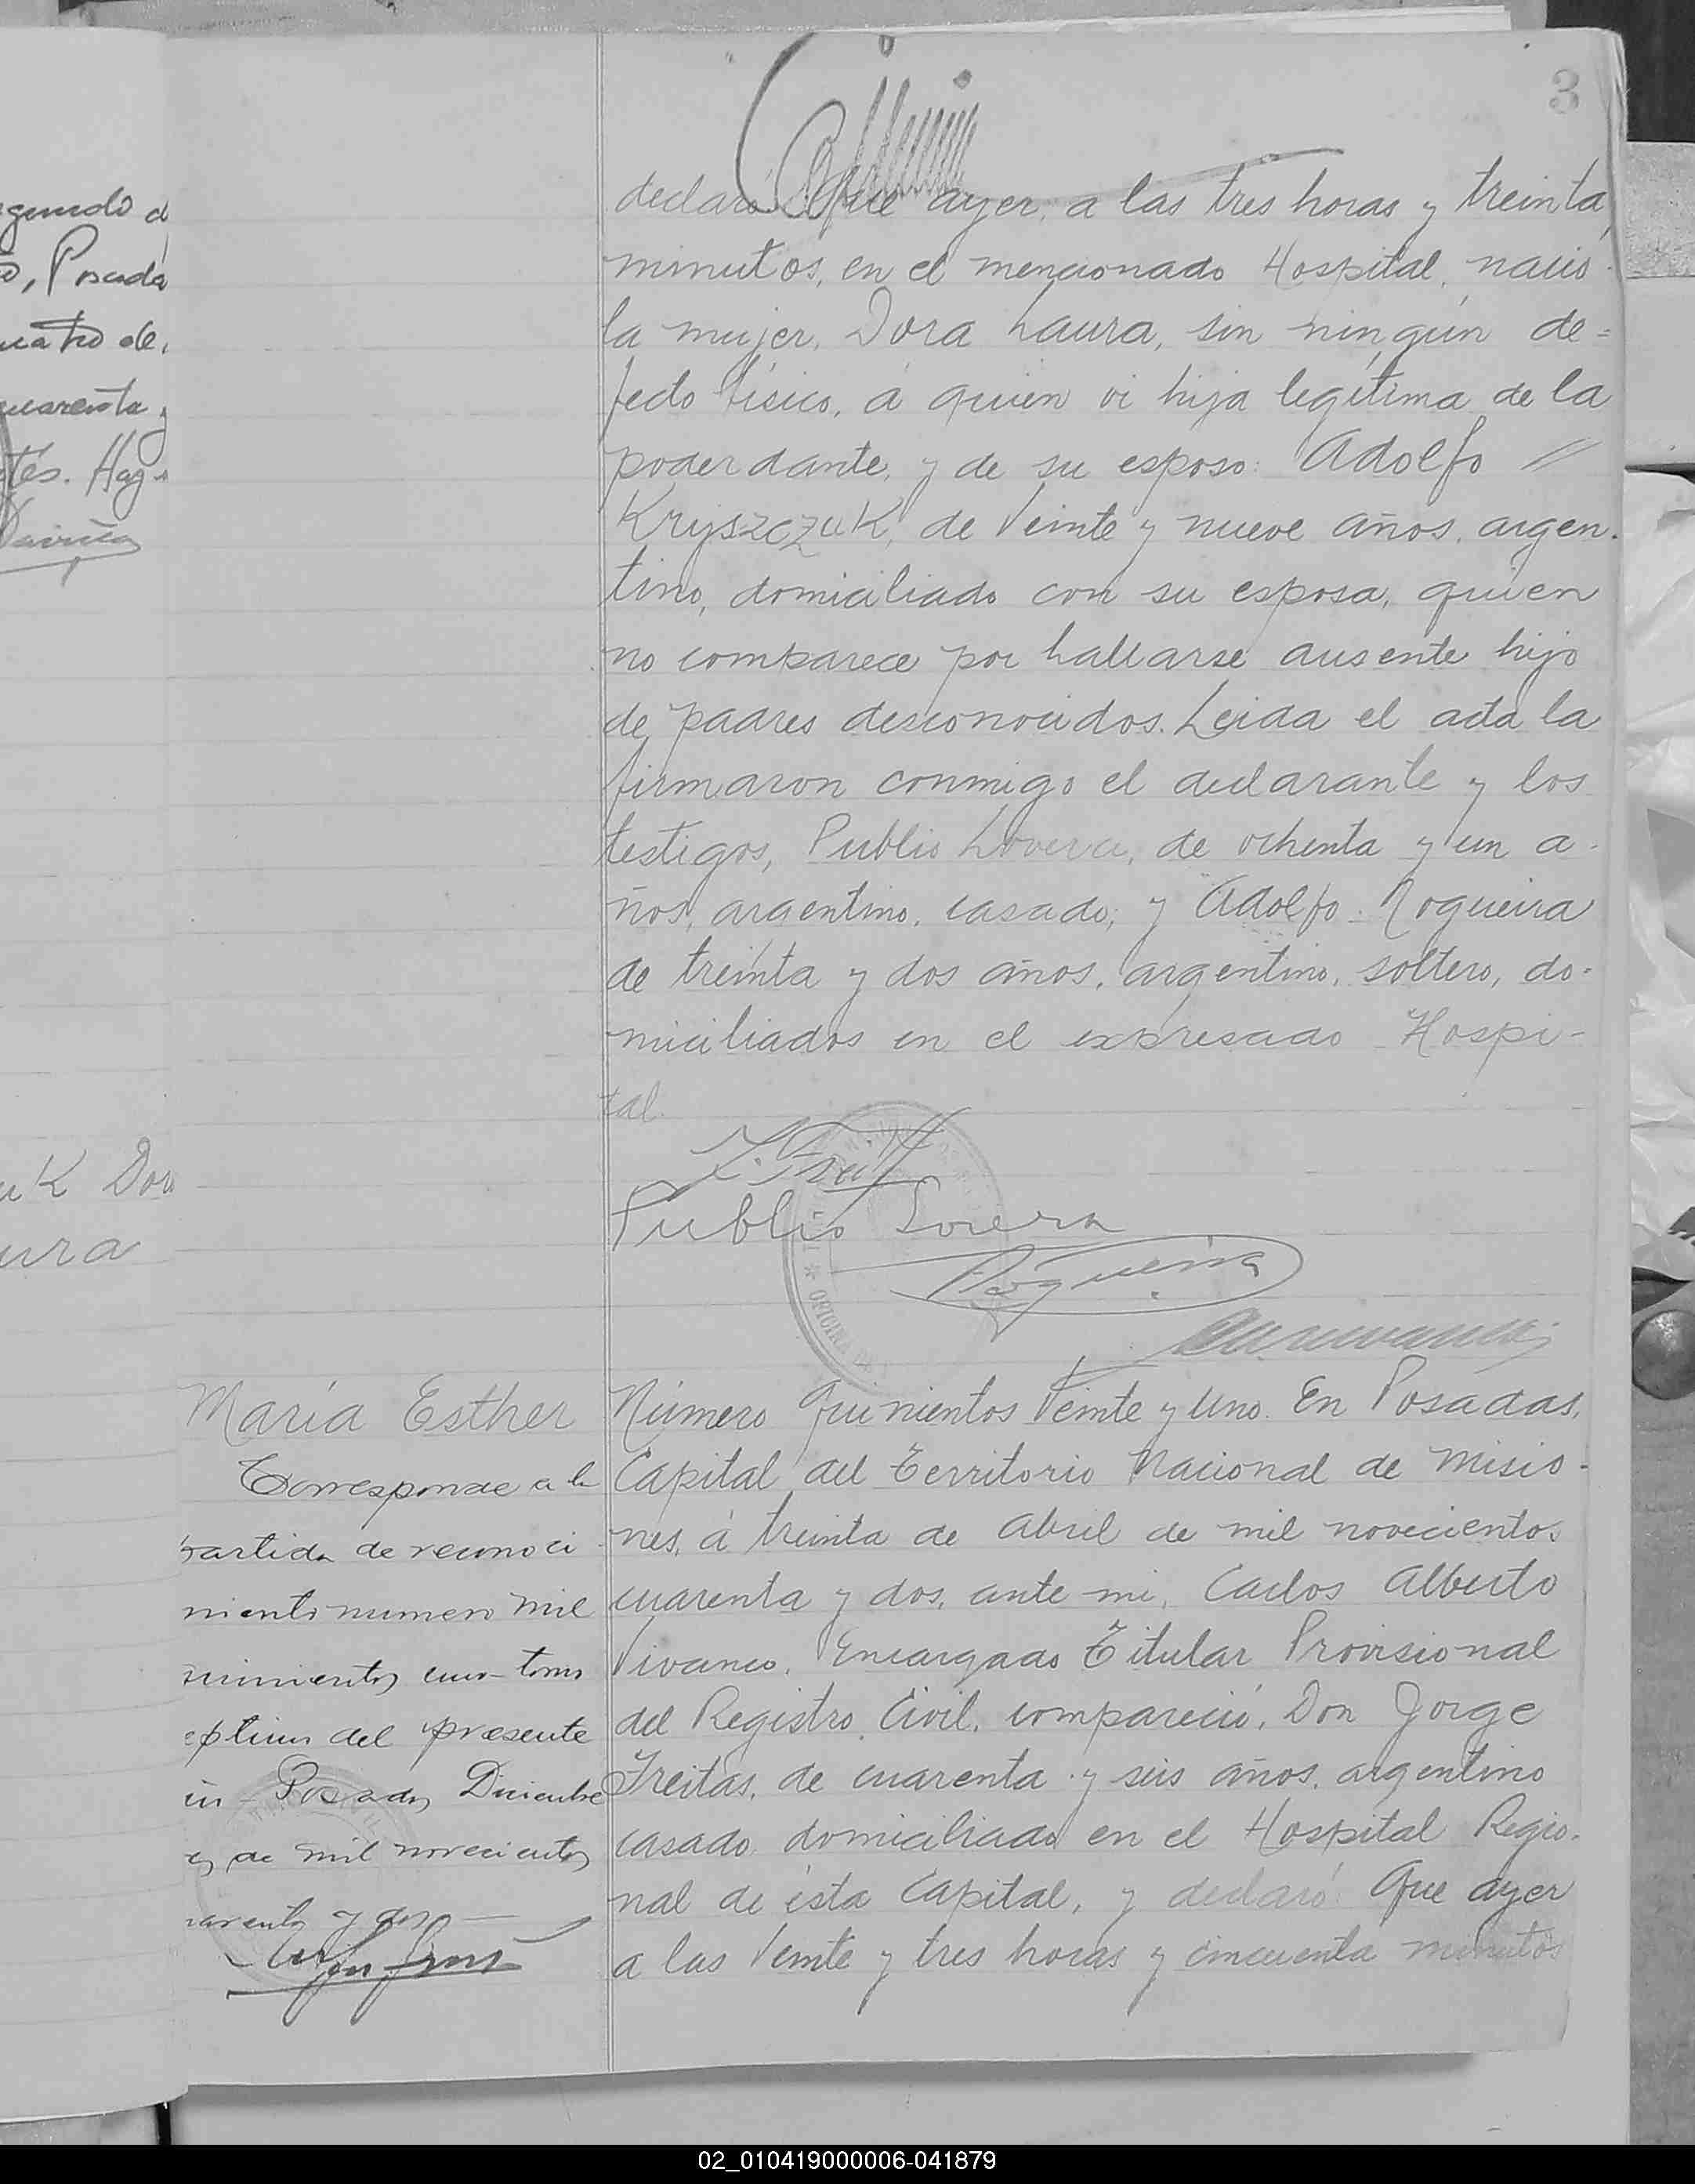 3
declaró: Que ayer, a las tres horas y treinta
minutos, en el mencionado Hospital, nació
la mujer, Dora Laura, sin ningún de=
fecto físico, á quien vi hija legítima de la
poderdante, y de su esposo: Adolfo //
Kryszczuk, de Veinte y nueve años, argen-
tino, domiciliado con su esposa, quien
no comparece por hallarse ausente hijo
de padres desconocidos. Leida el acta la
firmaron conmigo el declarante y los
testigos, Publio Lovera, de ochenta y un a-
ños, argentino, casado; y Adolfo Nogueira
de treinta y dos años, argentino, soltero, do-
miciliados en el expresado Hospi-
tal.
Publio Lovera
Nogueira
OFICINA
María Esther
Corresponde a la
partida de reconoci
miento numero mil
uno tomo
del presente
Posadas, Diciembre
de mil novecientos
y dos
Número Quinientos Veinte y Uno. En Posadas,
Capital del Territorio Nacional de Misio-
nes, á treinta de Abril de mil novecientos
cuarenta y dos, ante mi, Carlos Alberto
Vivanco, Encargado Titular Provisional
del Registro Civil, compareció, Don Jorge
Freitas, de cuarenta y seis años, argentino
casado, domiciliado en el Hospital Regio-
nal de ésta Capital, y declaró: Que ayer
a las Veinte y tres horas y cincuenta minutos
gundo d
, Posada
uatro de
cuarenta y
tés. Hag
uk Dor
ura
02_010419000006-041879